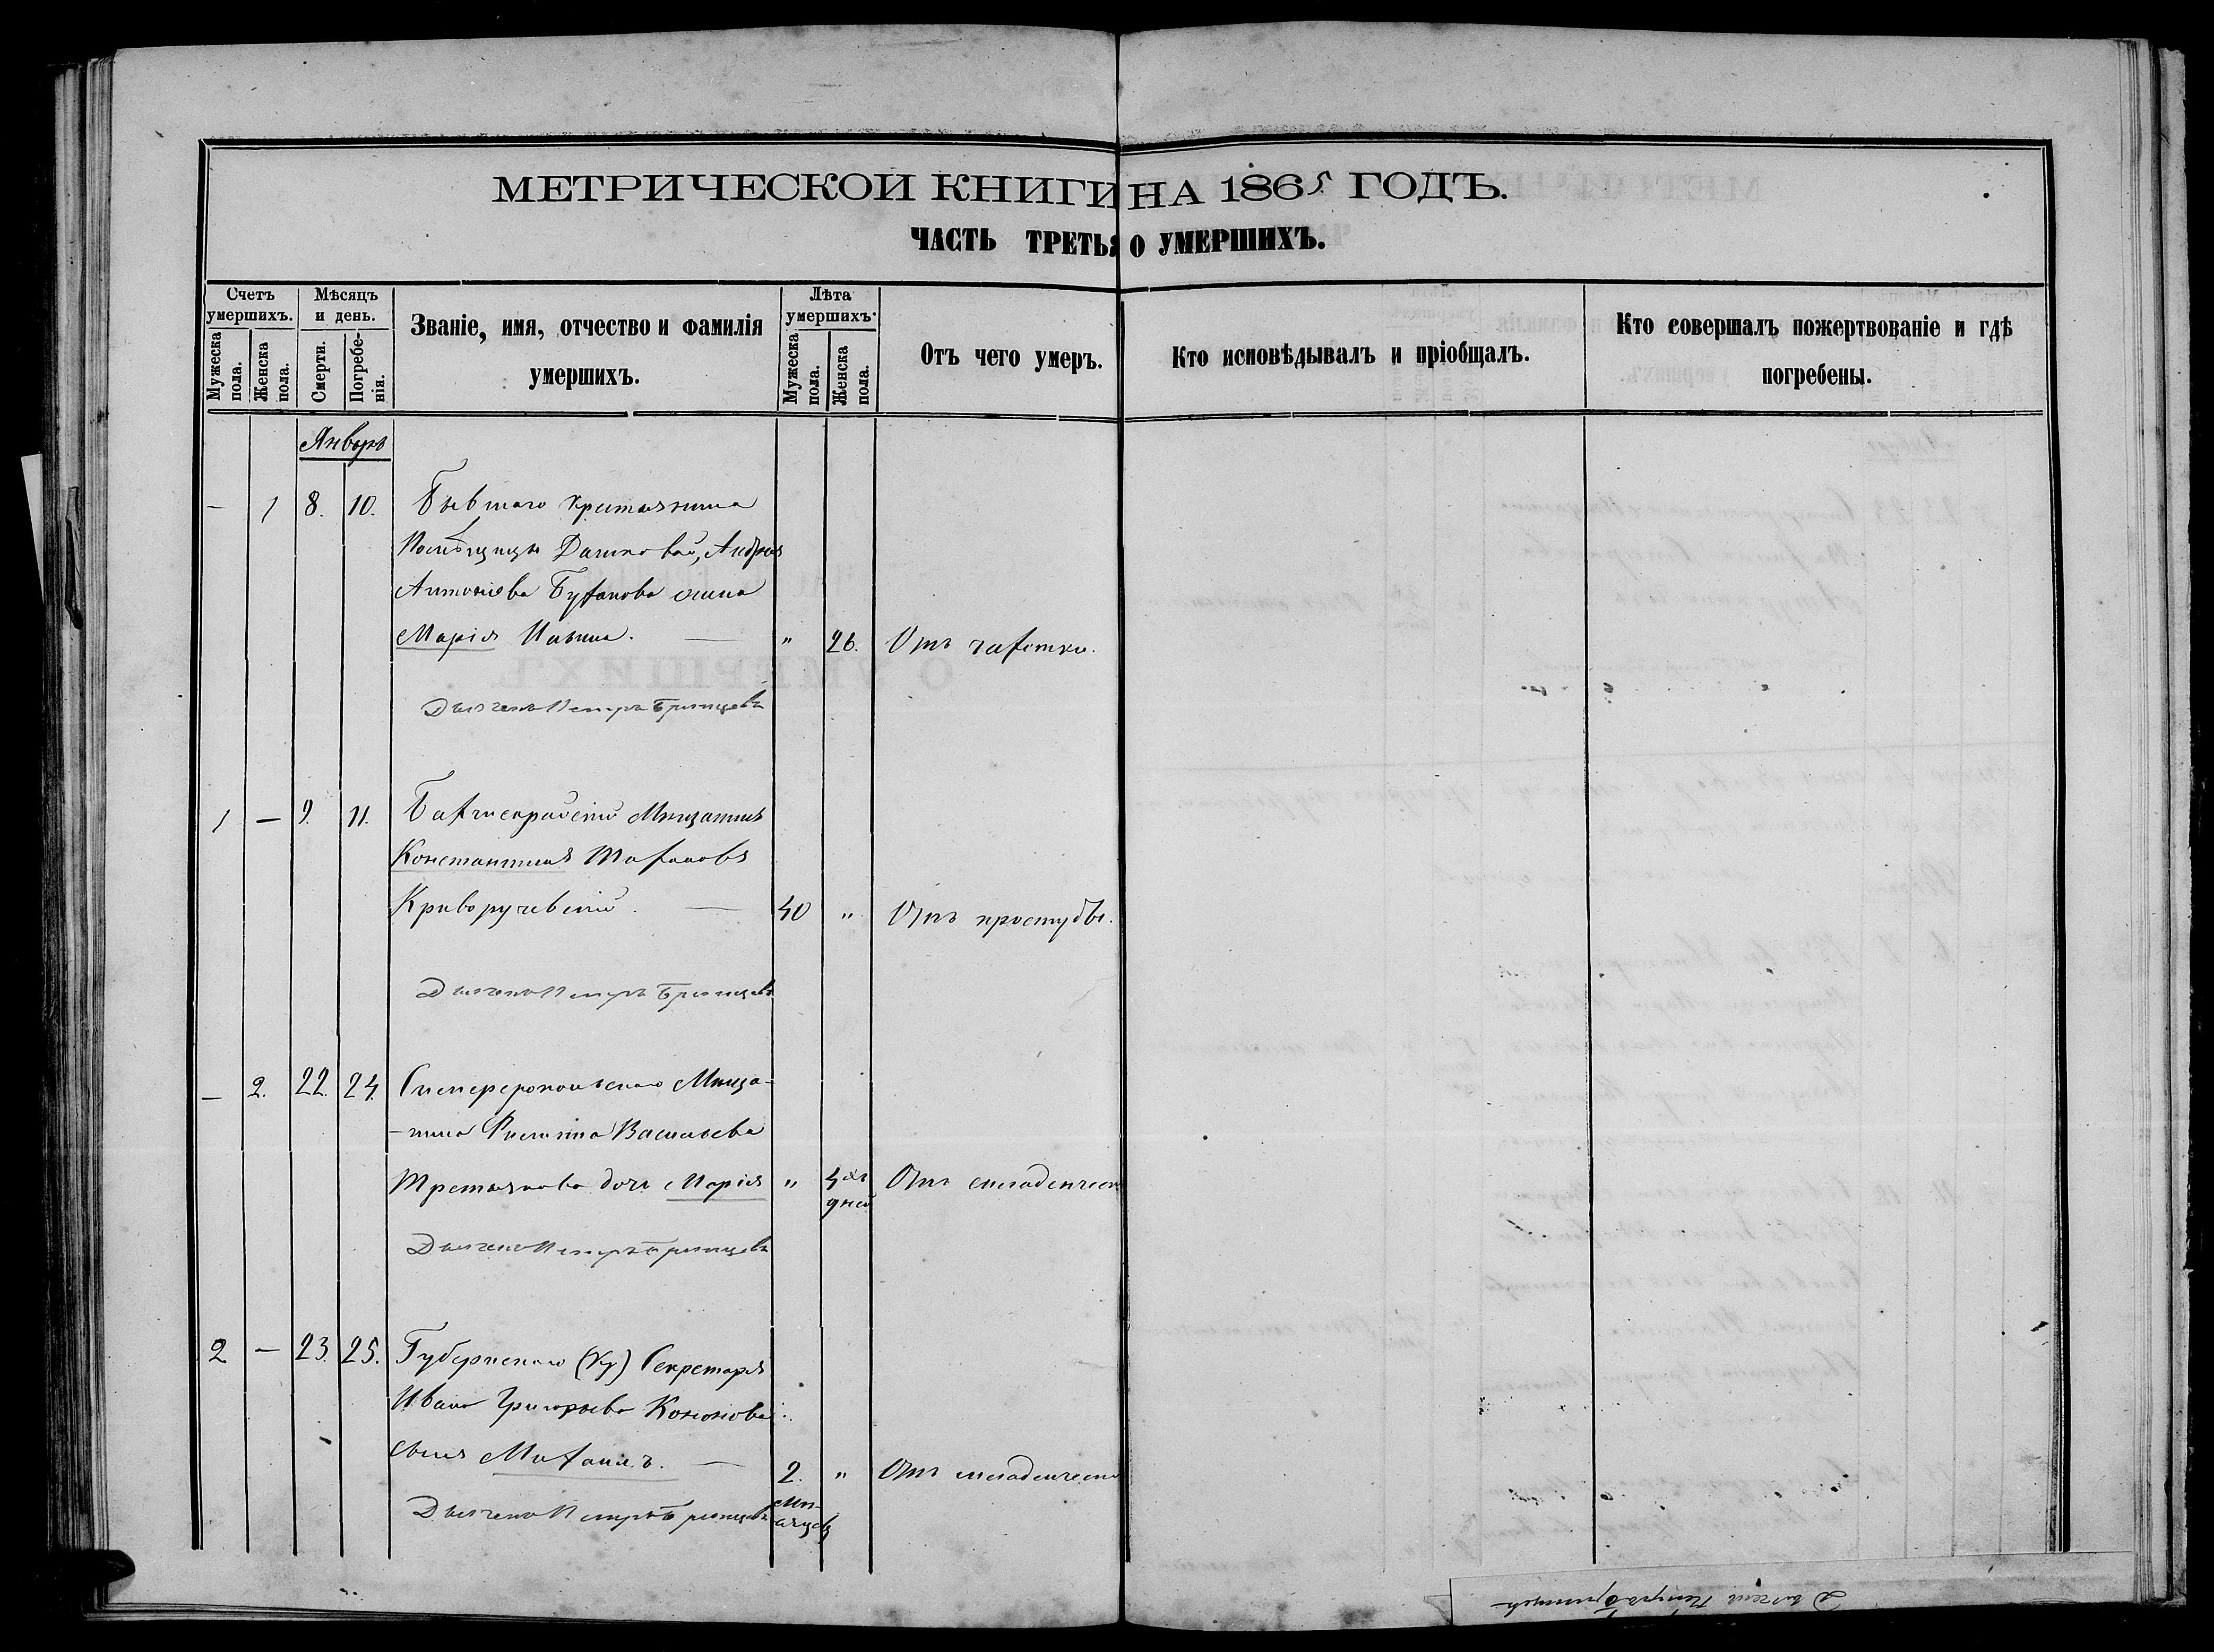 МЕТРИЧЕСКОЙ КНИГИ НА 1865 ГОДЪ.
ЧАСТЬ ТРЕТЬЯ О УМЕРШИХЪ.
Счетъ умершихъ.
Мужеска пола.
Женска пола.
Мѣсяцъ и день.
Смерти.
Погребенія.
Званіе, имя, отчество и фамилія
умершихъ.
Лѣта умершихъ.
Мужеска пола.
Женска пола.
Отъ чего умеръ.
Кто исповѣдывалъ и пріобщалъ.
Кто совершалъ пожертвованіе и гдѣ
погребены.
Январь
— 1 8. 10. Бывшаго крестьянина
Помѣщицы Дашковой, Андрея
Антоніева Буханова жена
Марія Ильина. — " 26. Отъ чахотки.
Дьячекъ Петръ Брянцевъ
1 — 9. 11. Бахчисарайскій Мещанинъ
Константинъ
Криворучевскій. — 40 " Отъ простуды.
Дьячекъ Петръ Брянцевъ
— 2. 22. 24. Симферопольскаго Меща-
-нина Филиппа Васильева
Третьякова дочь Марія " 4хъ дней Отъ младенческ
Дьячекъ Петръ Брянцевъ
2 — 23. 25. Губернскаго (Ку) Секретаря
Ивана Григорьева Кононова
сынъ Михаилъ. — 2. " Отъ младенческ
Дьячекъ Петръ Брянцевъ Мѣ-
-сяцовъ
Дьячекъ Петръ Брянцевъ